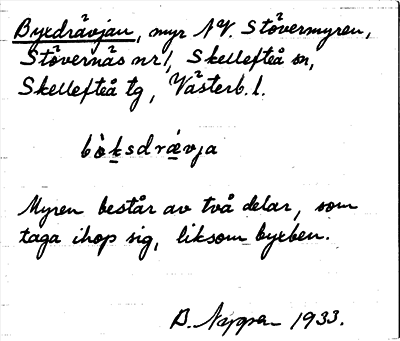 Byxdrävjan, myr N.V. Stövermyren,
Stövernäs nr 1, Skellefteå sn,
Skellefteå tg, Västerb. l.
bòksdrǽvja
Myren består av två delar, som
taga ihop sig, liksom byxben.
B. 1933.